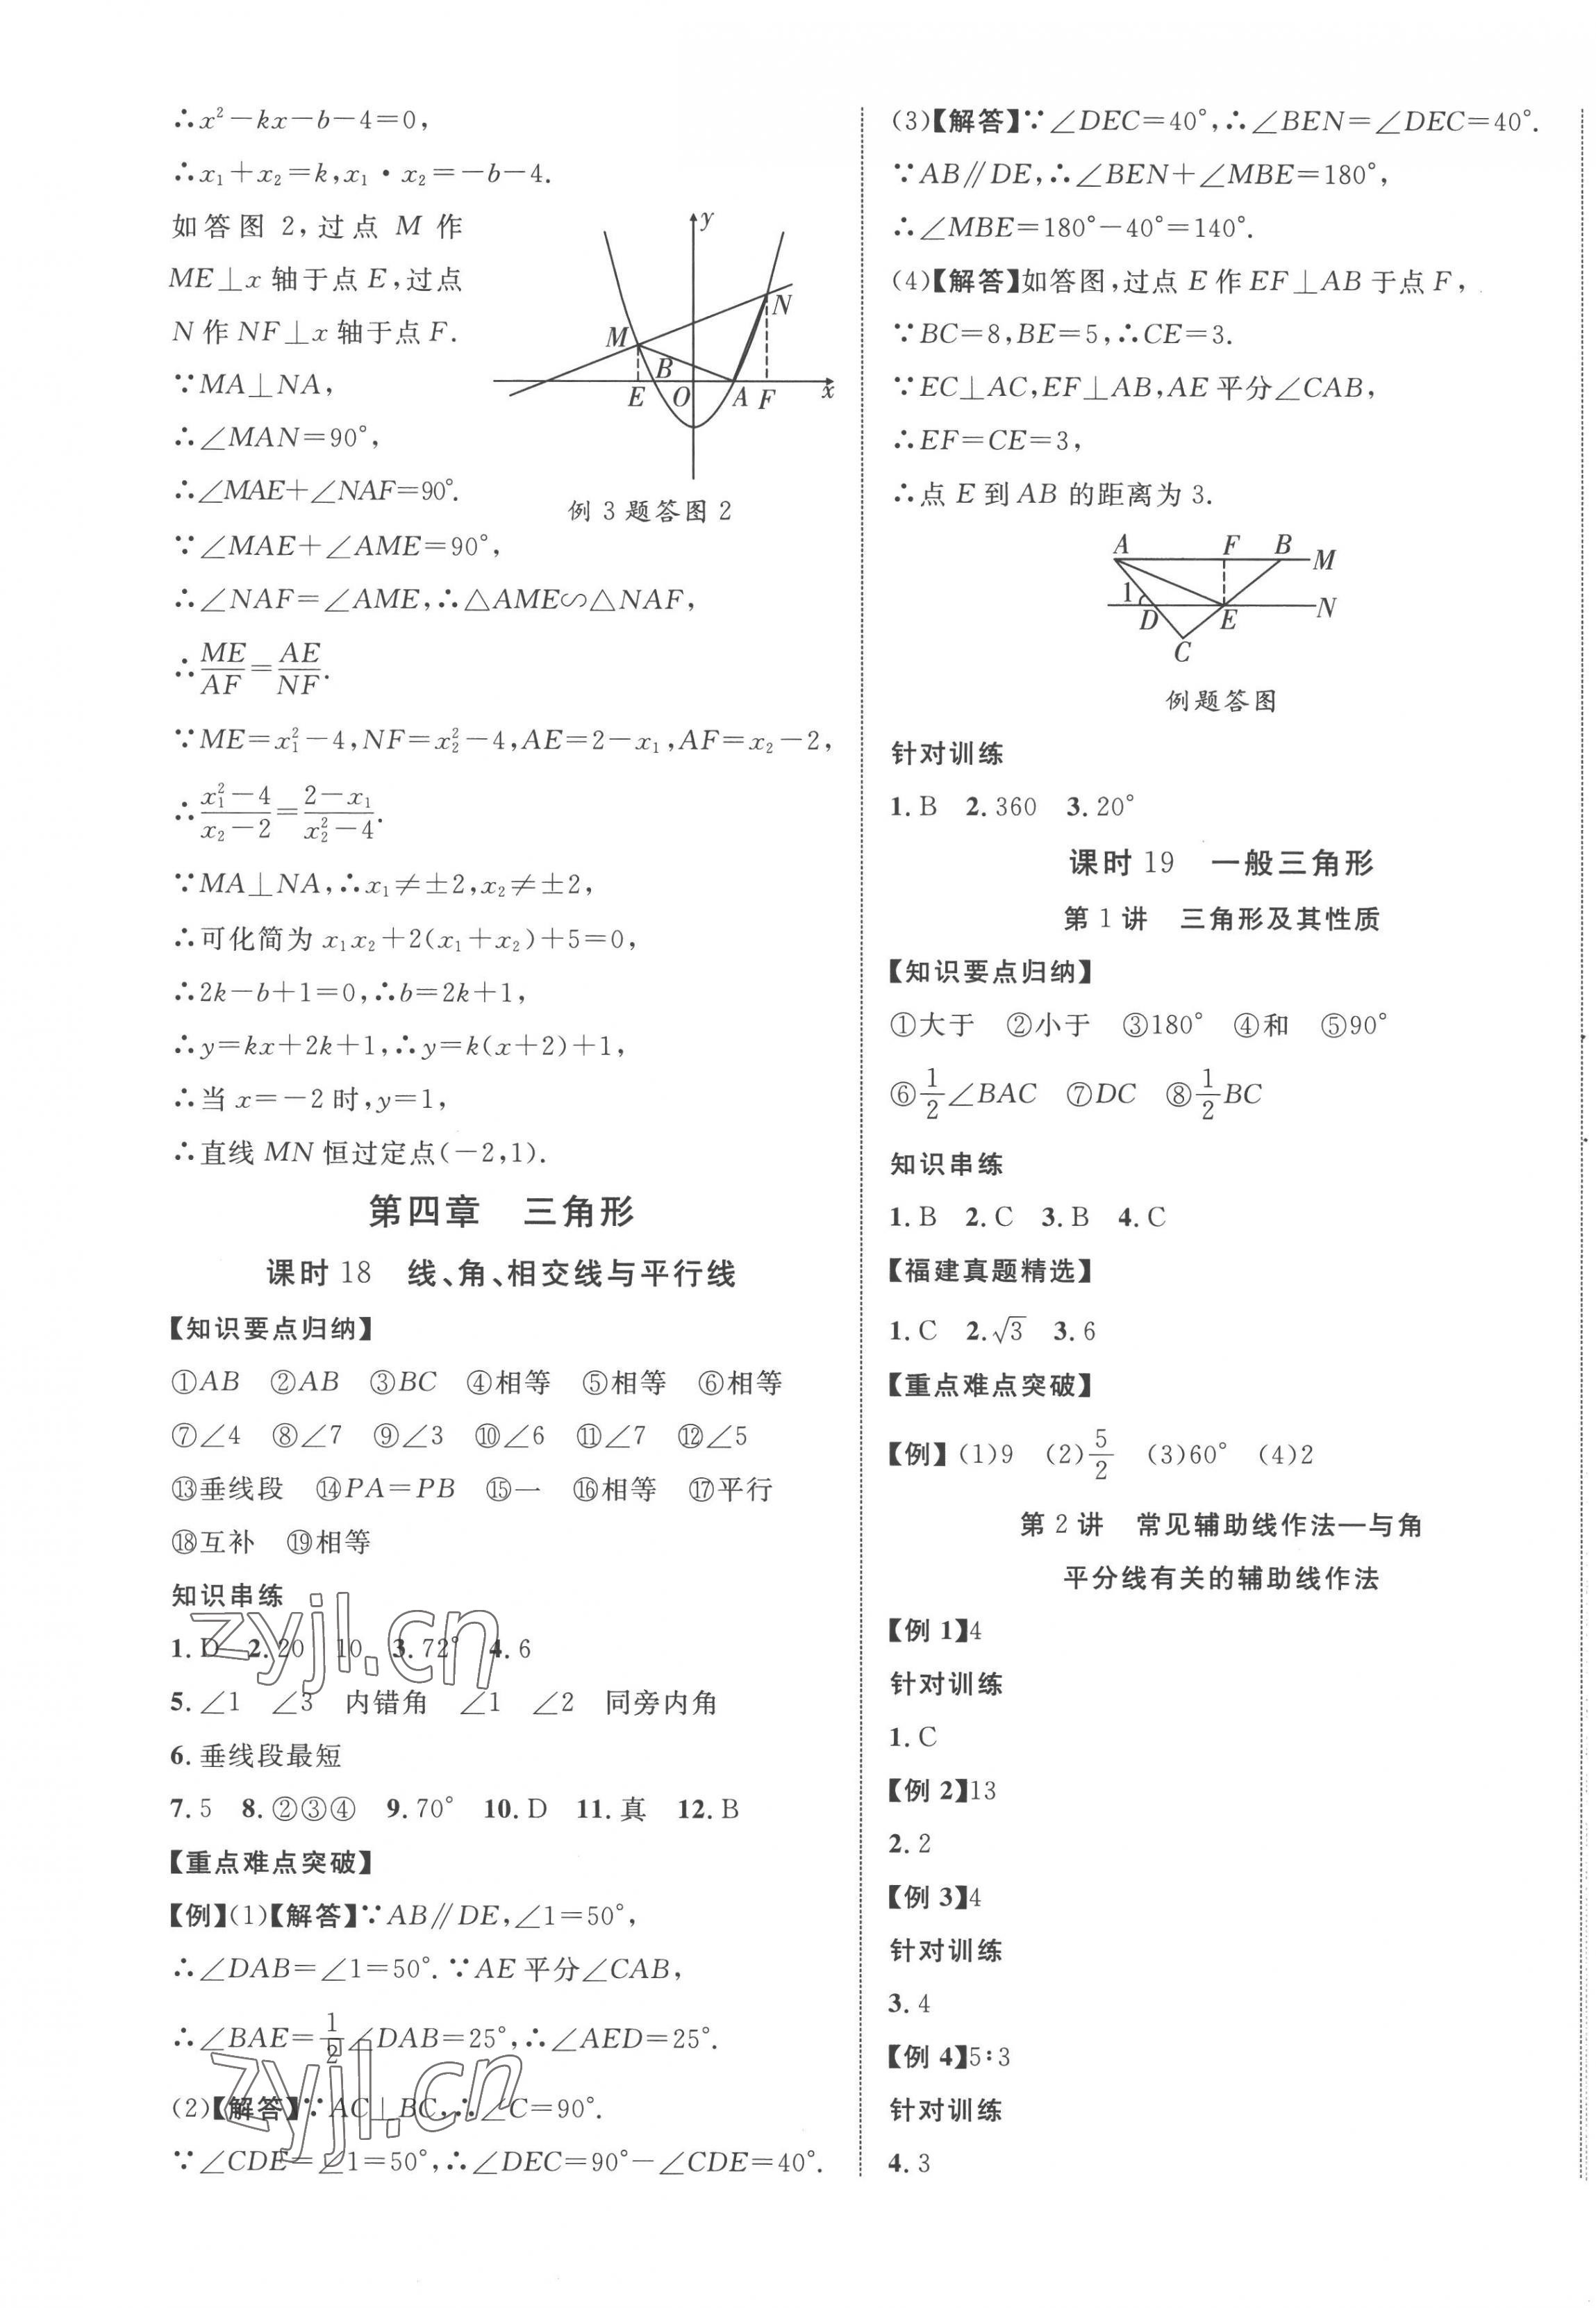 ∴x²－kx－b－4＝0，
∴x₁＋x₂＝k，x₁·x₂＝－b－4.
如答图 2，过点 M 作
ME⊥x 轴于点 E，过点
N 作 NF⊥x 轴于点 F.
∵MA⊥NA，
∴∠MAN＝90°，
∴∠MAE＋∠NAF＝90°.
y
N
M
B
E
O
A
F
x
例 3 题答图 2
∵∠MAE＋∠AME＝90°，
∴∠NAF＝∠AME，∴△AME∽△NAF，
∴ME/AF＝AE/NF.
∵ME＝x₁²－4，NF＝x₂²－4，AE＝2－x₁，AF＝x₂－2，
∴(x₁²－4)/(x₂－2)＝(2－x₁)/(x₂²－4).
∵MA⊥NA，∴x₁≠±2，x₂≠±2，
∴可化简为 x₁x₂＋2(x₁＋x₂)＋5＝0，
∴2k－b＋1＝0，∴b＝2k＋1，
∴y＝kx＋2k＋1，∴y＝k(x＋2)＋1，
∴当 x＝－2 时，y＝1，
∴直线 MN 恒过定点(－2，1).
第四章 三角形
课时 18 线、角、相交线与平行线
【知识要点归纳】
①AB ②AB ③BC ④相等 ⑤相等 ⑥相等
⑦∠4 ⑧∠7 ⑨∠3 ⑩∠6 ⑪∠7 ⑫∠5
⑬垂线段 ⑭PA＝PB ⑮一 ⑯相等 ⑰平行
⑱互补 ⑲相等
知识串练
1. D 2. 20 10 3. 72° 4. 6
5. ∠1 ∠3 内错角 ∠1 ∠2 同旁内角
6. 垂线段最短
7. 5 8. ②③④ 9. 70° 10. D 11. 真 12. B
【重点难点突破】
【例】(1)【解答】∵AB∥DE，∠1＝50°，
∴∠DAB＝∠1＝50°. ∵AE 平分∠CAB，
∴∠BAE＝1/2∠DAB＝25°，∴∠AED＝25°.
(2)【解答】∵AC⊥BC，∴∠C＝90°.
∵∠CDE＝∠1＝50°，∴∠DEC＝90°－∠CDE＝40°.
zyjl.cn
zyjl.cn
(3)【解答】∵∠DEC＝40°，∴∠BEN＝∠DEC＝40°.
∵AB∥DE，∴∠BEN＋∠MBE＝180°，
∴∠MBE＝180°－40°＝140°.
(4)【解答】如答图，过点 E 作 EF⊥AB 于点 F，
∵BC＝8，BE＝5，∴CE＝3.
∵EC⊥AC，EF⊥AB，AE 平分∠CAB，
∴EF＝CE＝3，
∴点 E 到 AB 的距离为 3.
A
F
B
M
1
D
E
N
C
例题答图
针对训练
1. B 2. 360 3. 20°
课时 19 一般三角形
第 1 讲 三角形及其性质
【知识要点归纳】
①大于 ②小于 ③180° ④和 ⑤90°
⑥1/2∠BAC ⑦DC ⑧1/2BC
知识串练
1. B 2. C 3. B 4. C
【福建真题精选】
1. C 2. √3 3. 6
【重点难点突破】
【例】(1)9 (2)5/2 (3)60° (4)2
第 2 讲 常见辅助线作法—与角
平分线有关的辅助线作法
【例 1】4
针对训练
1. C
【例 2】13
2. 2
【例 3】4
针对训练
3. 4
【例 4】5∶3
针对训练
4. 3